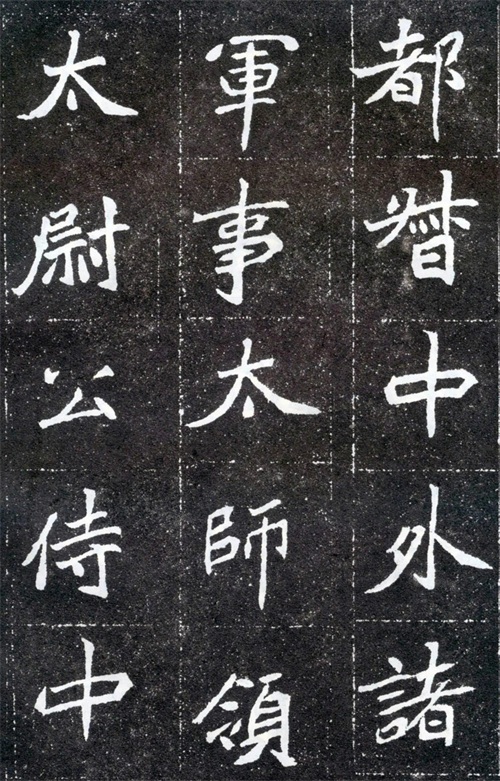 都督中外諸
軍事太師領
太尉公侍中